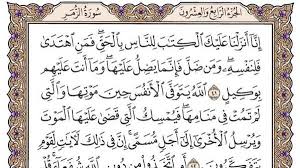 الجزء الرابع والعشرون سورة الزمر
إِنَّا أَنزَلْنَا عَلَيْكَ الْكِتَٰبَ لِلنَّاسِ بِالْحَقِّ ۖ فَمَنِ اهْتَدَىٰ
فَلِنَفْسِهِ ۖ وَمَن ضَلَّ فَإِنَّمَا يَضِلُّ عَلَيْهَا ۖ وَمَا أَنتَ عَلَيْهِم
بِوَكِيلٍ ٤١ اللَّهُ يَتَوَفَّى الْأَنفُسَ حِينَ مَوْتِهَا وَالَّتِي
لَمْ تَمُتْ فِي مَنَامِهَا ۖ فَيُمْسِكُ الَّتِي قَضَىٰ عَلَيْهَا الْمَوْتَ
وَيُرْسِلُ الْأُخْرَىٰ إِلَىٰ أَجَلٍ مُّسَمًّى ۚ إِنَّ فِي ذَٰلِكَ لَآيَٰتٍ لِّقَوْمٍ